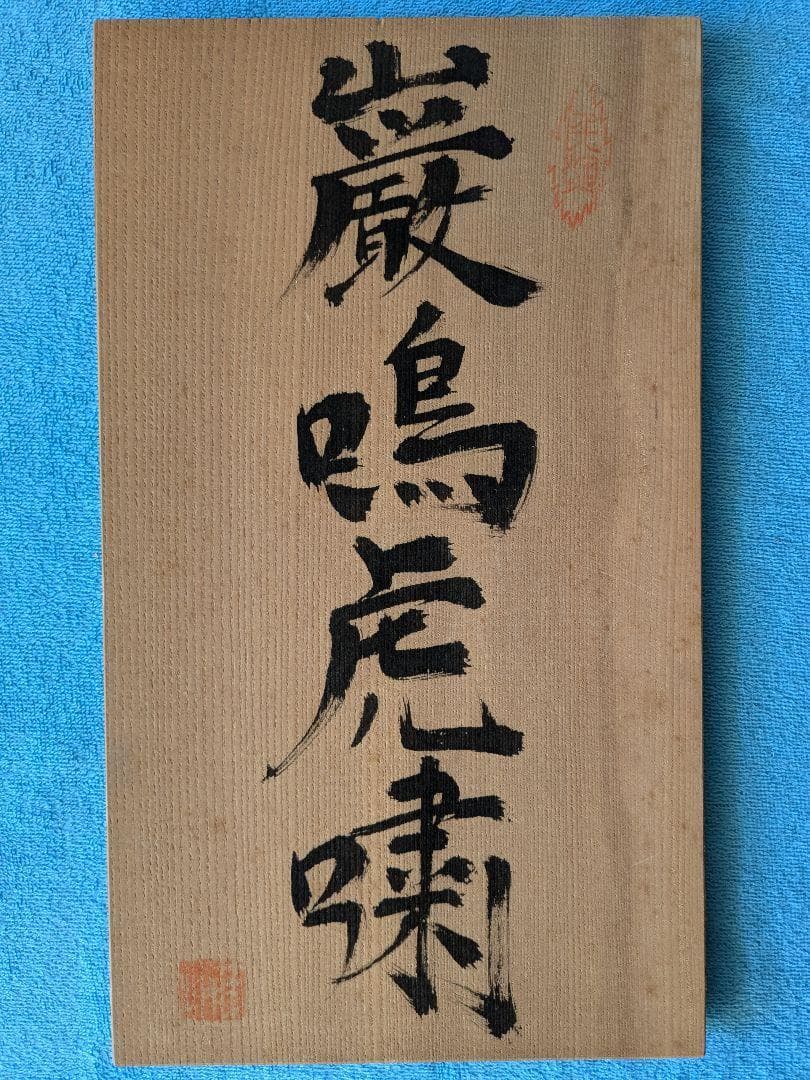 巖鳴虎嘯